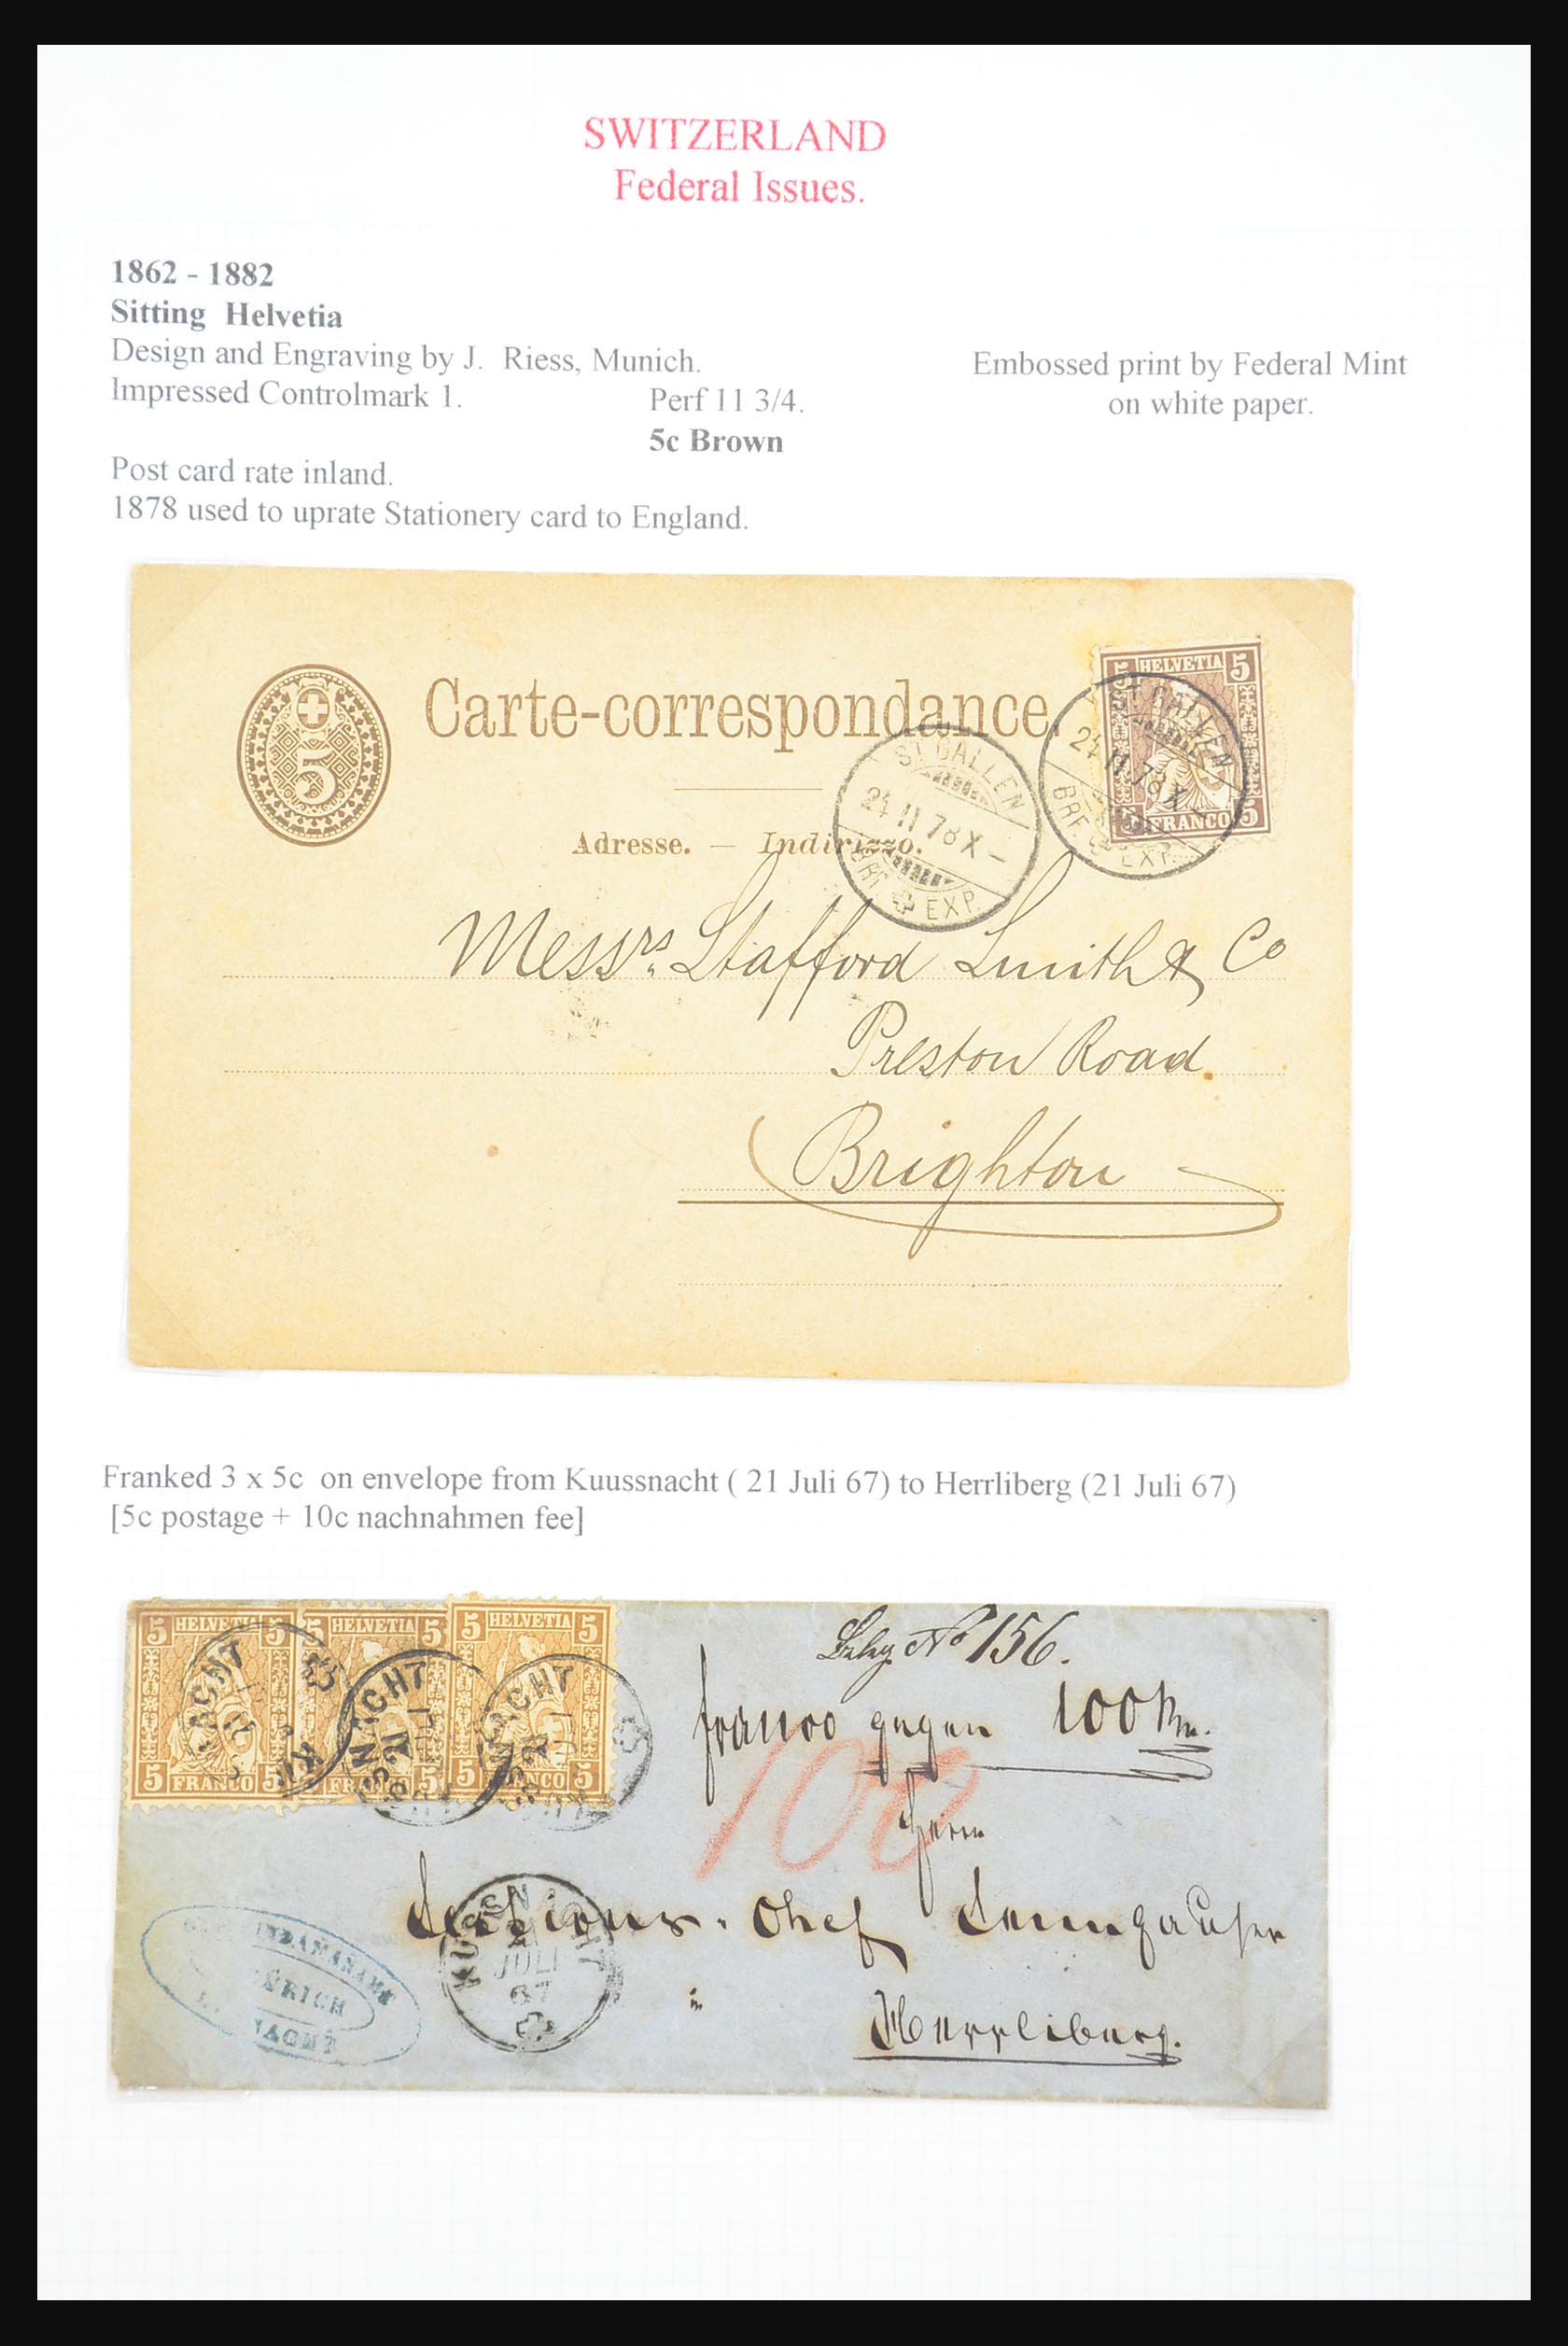 SWITZERLAND
Federal Issues.
1862 - 1882
Sitting Helvetia
Design and Engraving by J. Riess, Munich.
Impressed Controlmark 1.
Perf 11 3/4.
5c Brown
Embossed print by Federal Mint
on white paper.
Post card rate inland.
1878 used to uprate Stationery card to England.
5
Carte-correspondance.
5 HELVETIA 5
5 FRANCO 5
ST. GALLEN
24 II 78 X -
BRF. EXP.
ST. GALLEN
24 II 78 X -
BRF. EXP.
Adresse. — Indirizzo.
Messrs. Stafford Smith & Co
Preston Road.
Brighton
Franked 3 x 5c on envelope from Kuussnacht ( 21 Juli 67) to Herrliberg (21 Juli 67)
[5c postage + 10c nachnahmen fee]
5 HELVETIA 5
5 FRANCO 5
5 HELVETIA 5
5 FRANCO 5
5 HELVETIA 5
5 FRANCO 5
No 156.
franco gegen 100
100
Herrn
Chef
KUSSNACHT
21
JULI
67
ZÜRICH
in
Herrliberg.